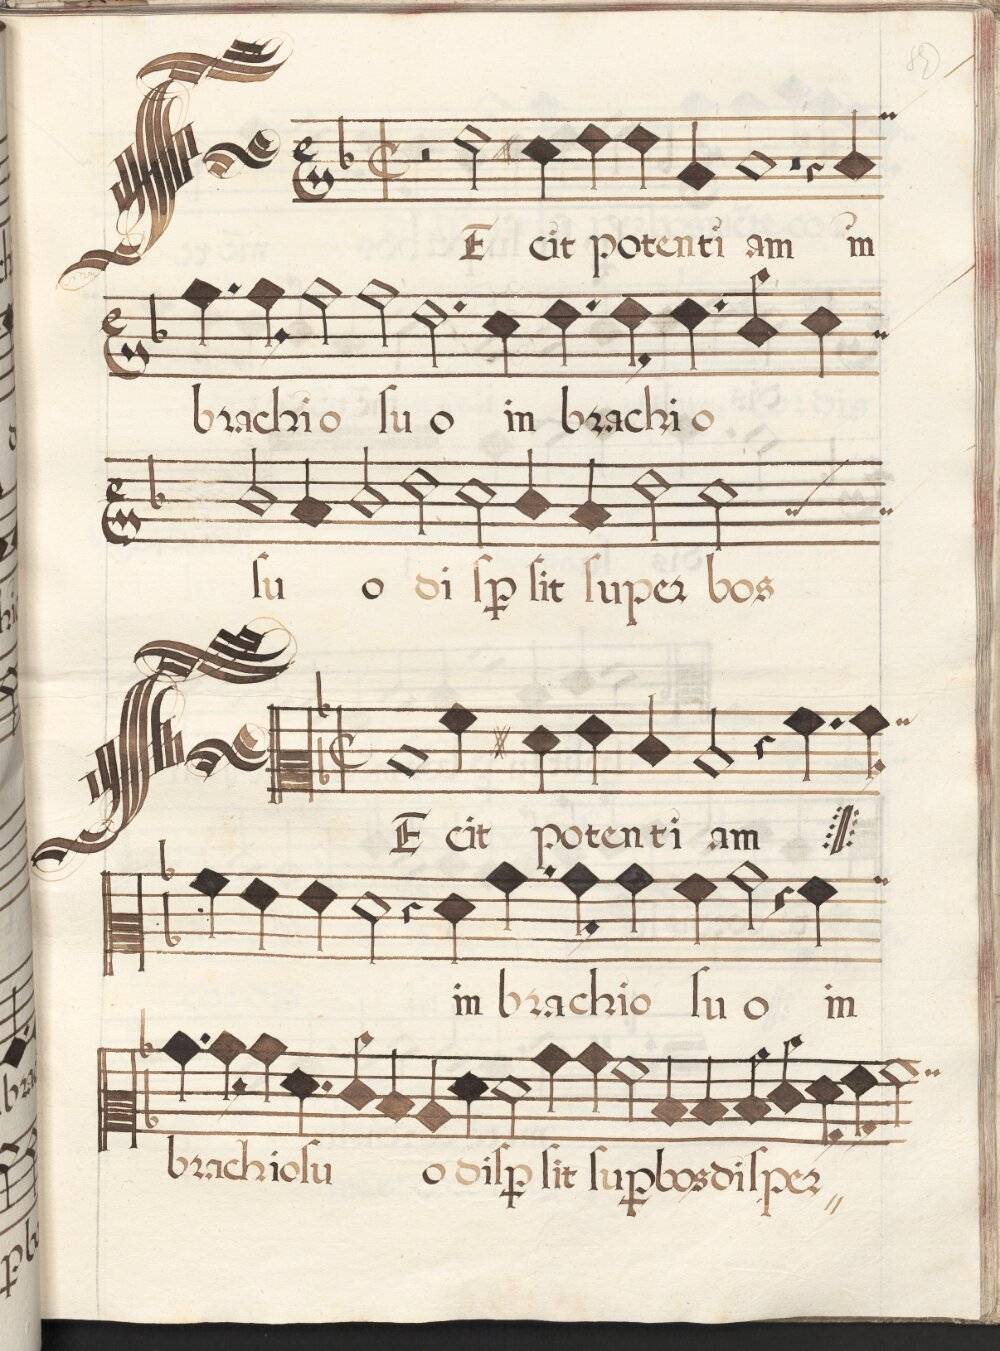 FE cit potenti am in
brachio su o in brachio
su o di sp sit super bos
FE cit potenti am
in brachio su o in
brachiosu o disp sit supbosdisper